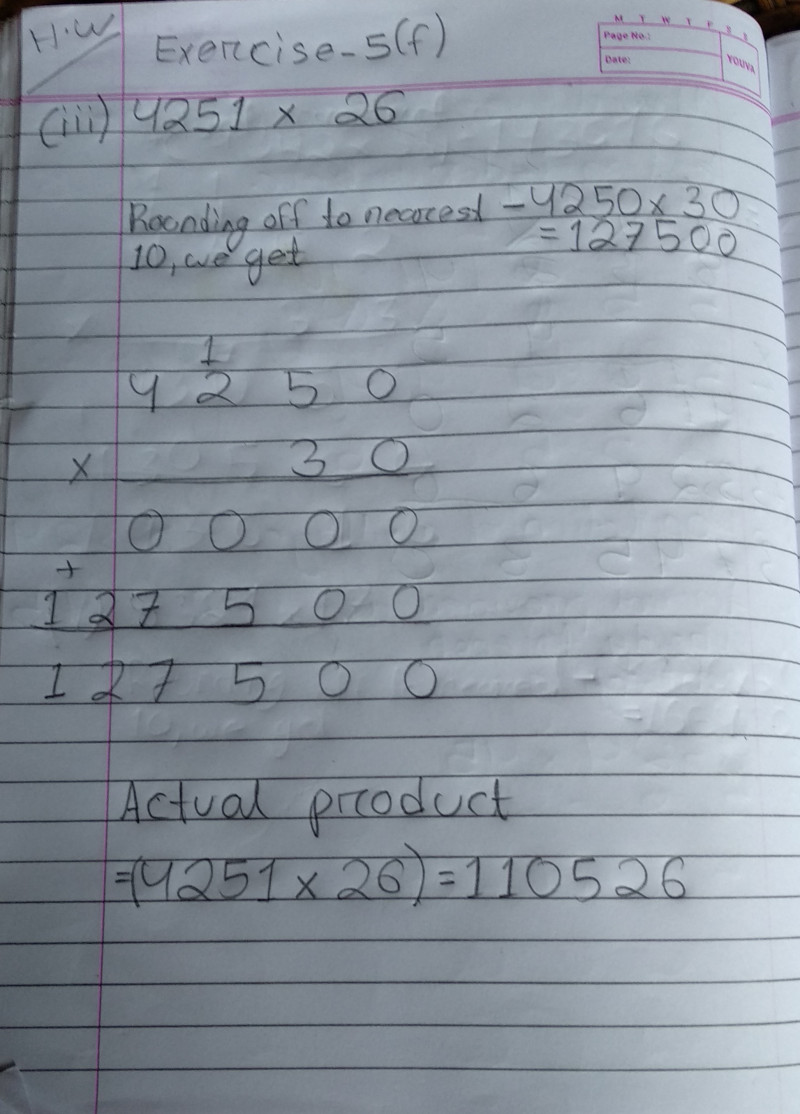 H.W
Exercise-5(f)
M T W T F S S
Page No.:
Date:
YOUVA
(iii) 4251 x 26
Rounding off to nearest - 4250 x 30
10, we get = 127500
1
4 2 5 0
x 3 0
0 0 0 0
+
1 2 7 5 0 0
1 2 7 5 0 0
Actual product
=(4251 x 26) = 110526